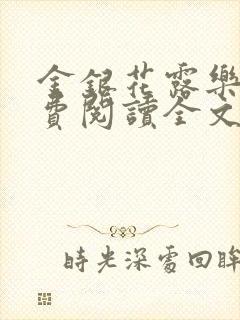 金銀花露樂
費閱讀全文
時光深處回眸